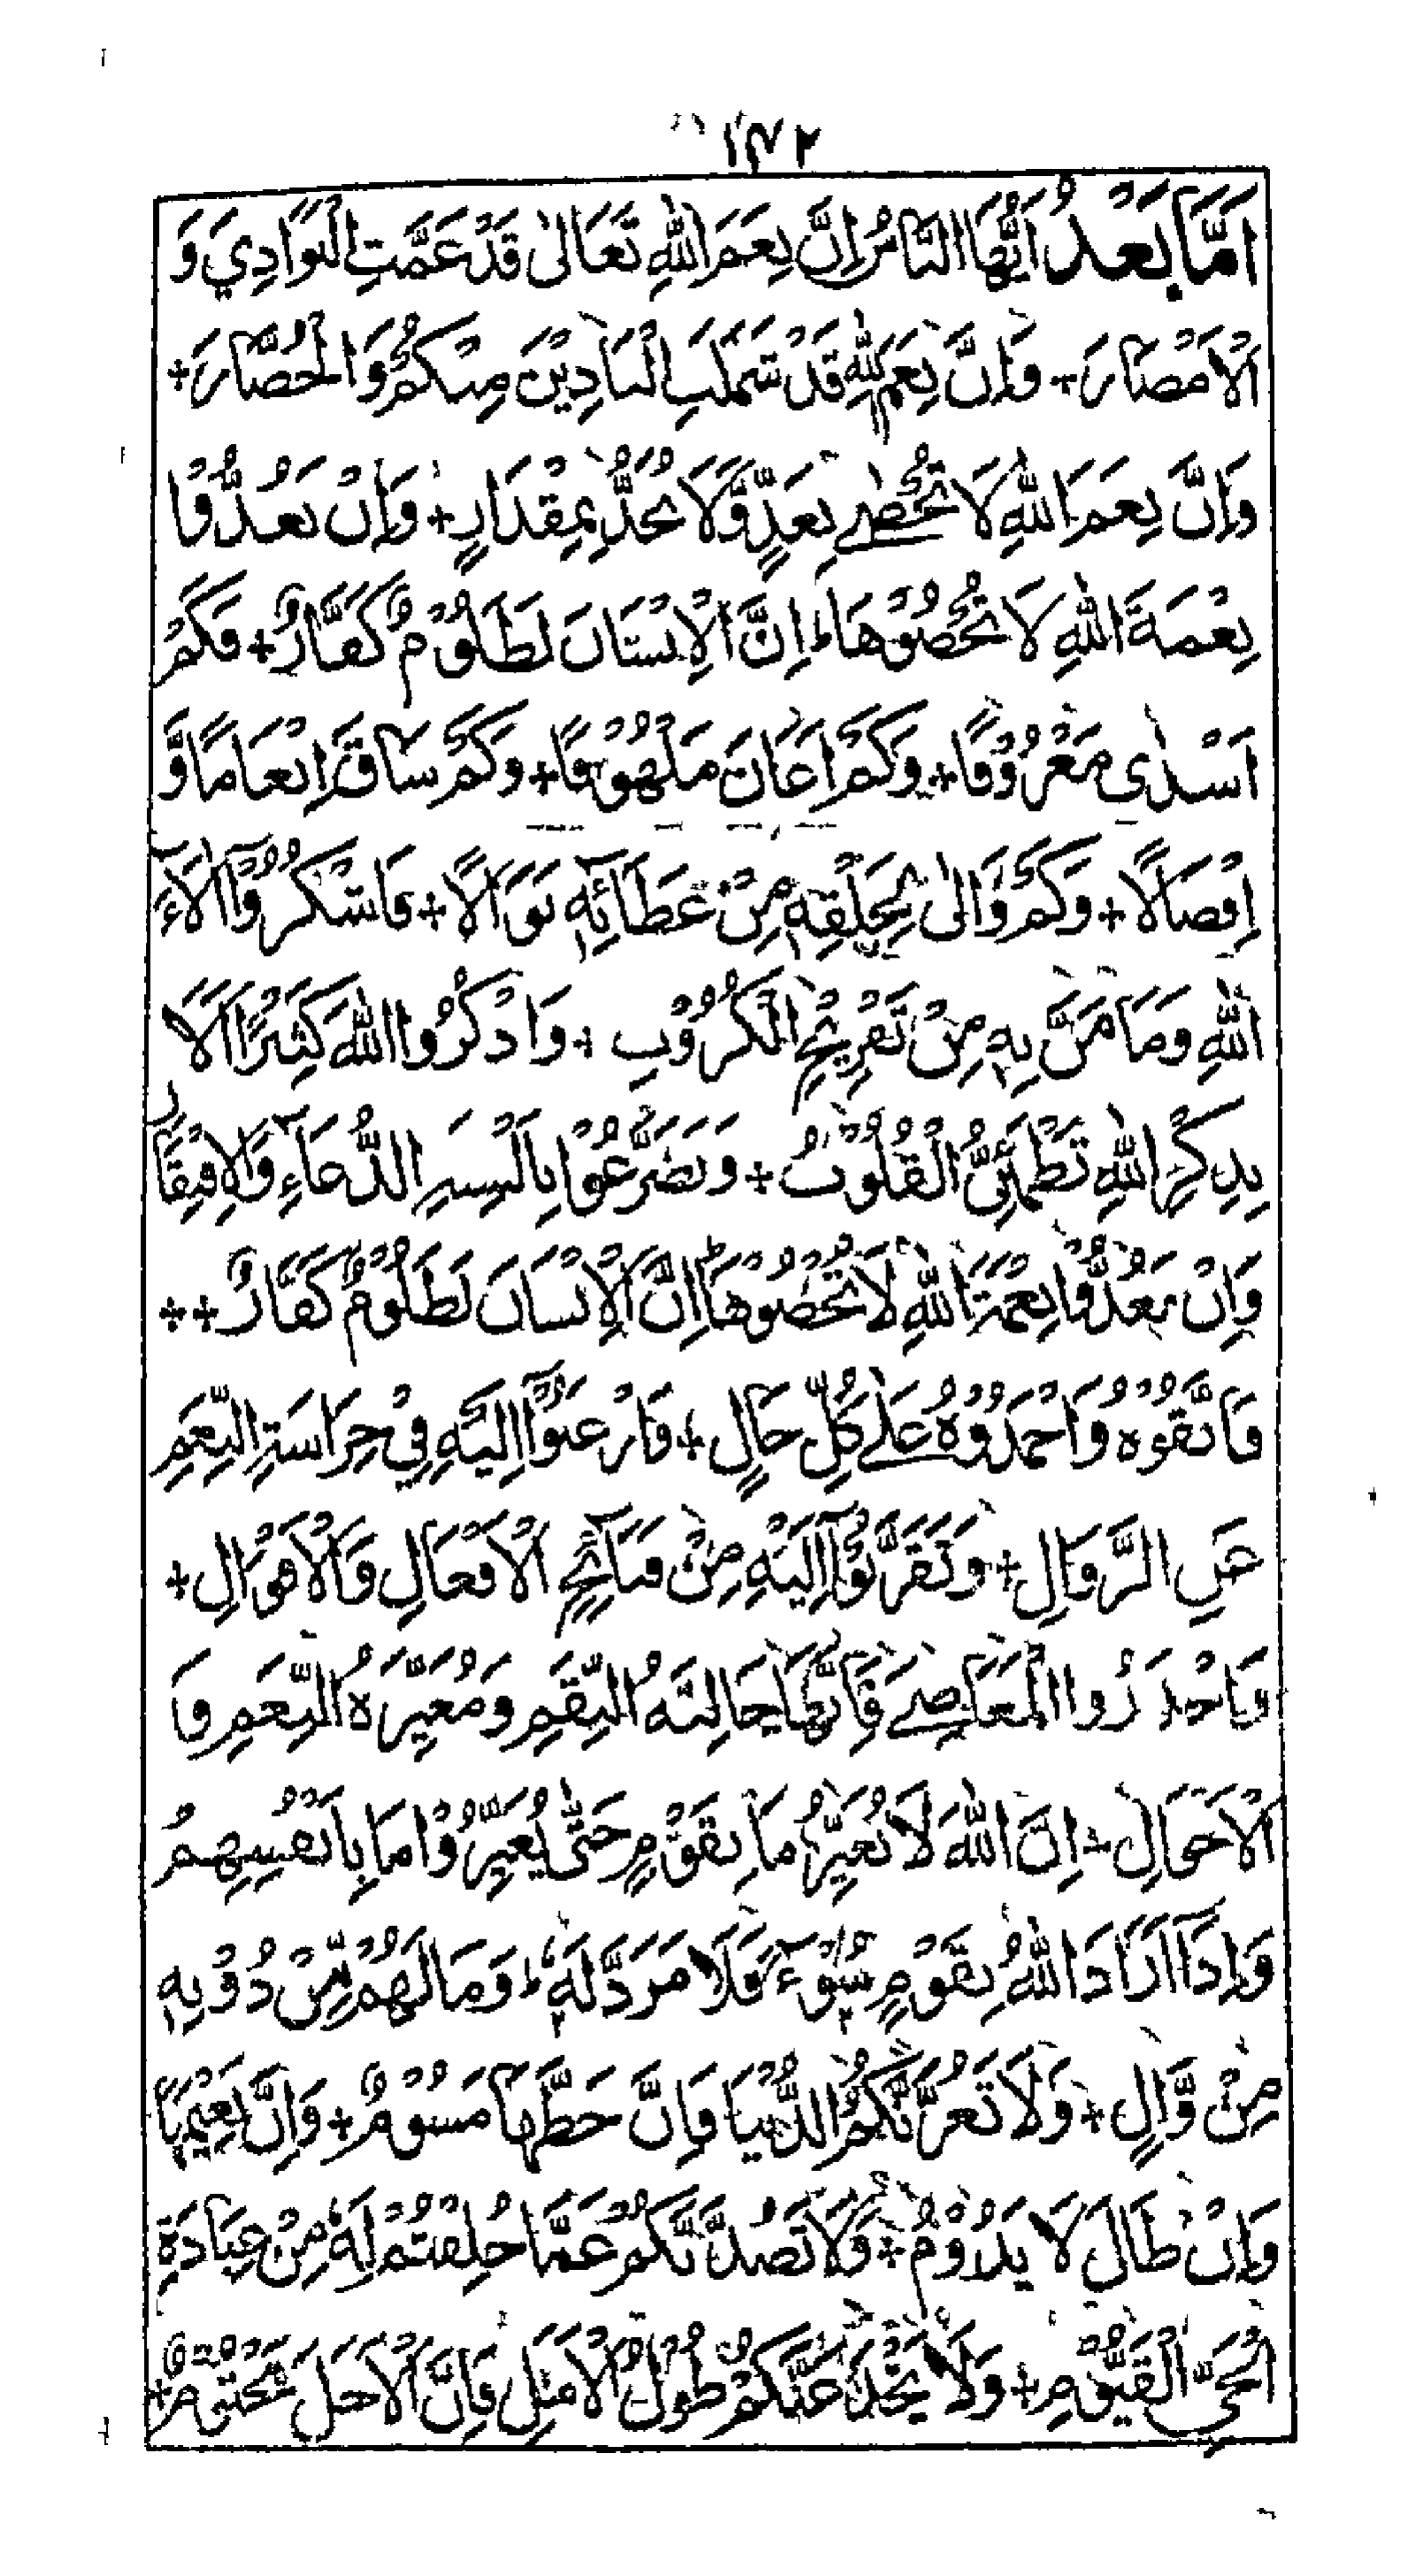 ١٧٢
اَمَّا بَعْدُ اَيُّهَا النَّاسُ اِنَّ نِعَمَ اللّٰهِ تَعَالٰى قَدْ عَمَّتِ الْبَوَادِيَ وَ
الْاَمْصَارَ + وَاِنَّ نِعَمَ اللّٰهِ قَدْ شَمِلَتِ الْبَادِيْنَ مِنْكُمْ وَالْحُضَّارَ +
وَاِنَّ نِعَمَ اللّٰهِ لَا تُحْصٰے بِعَدٍّ وَّلَا تُحَدُّ بِمِقْدَارٍ + وَاِنْ تَعُدُّوْا
نِعْمَةَ اللّٰهِ لَا تُحْصُوْهَا ؕ اِنَّ الْاِنْسَانَ لَظَلُوْمٌ كَفَّارٌ + فَكَمْ
اَسْدٰى مَعْرُوْفًا + وَكَمْ اَعَانَ مَلْهُوْفًا + وَكَمْ سَاقَ اِنْعَامًا وَّ
اِفْضَالًا + وَكَمْ وَالٰى لِخَلْقِهٖ مِنْ عَطَائِهٖ نَوَالًا + فَاشْكُرُوْا اٰلَآءَ
اللّٰهِ وَمَا مَنَّ بِهٖ مِنْ تَفْرِيْجِ الْكُرُوْبِ + وَاذْكُرُوا اللّٰهَ كَثِيْرًا اَلَا
بِذِكْرِ اللّٰهِ تَطْمَئِنُّ الْقُلُوْبُ + وَتَضَرَّعُوْا بِاَلْسِنَةِ الدُّعَآءِ وَالْاِفْتِقَارِ
وَاِنْ تَعُدُّوْا نِعْمَةَ اللّٰهِ لَا تُحْصُوْهَا ؕ اِنَّ الْاِنْسَانَ لَظَلُوْمٌ كَفَّارٌ ++
فَاتَّقُوْهُ وَاحْمَدُوْهُ عَلٰے كُلِّ حَالٍ + وَارْغَبُوْا اِلَيْهِ فِيْ حِرَاسَةِ النِّعَمِ
عَنِ الزَّوَالِ + وَتَقَرَّبُوْا اِلَيْهِ مِنْ قَبَائِحِ الْاَفْعَالِ وَالْاَهْوَالِ +
وَاحْذَرُوا الْمَعَاصِے فَاِنَّهَا جَالِبَةُ النِّقَمِ وَمُغَيِّرَةُ النِّعَمِ وَ
الْاَحْوَالِ + اِنَّ اللّٰهَ لَا يُغَيِّرُ مَا بِقَوْمٍ حَتّٰى يُغَيِّرُوْا مَا بِاَنْفُسِهِمْ
وَاِذَا اَرَادَ اللّٰهُ بِقَوْمٍ سُوْءً فَلَا مَرَدَّ لَهٗ ؕ وَمَا لَهُمْ مِّنْ دُوْنِهٖ
مِنْ وَّالٍ + وَلَا تَغُرَّنَّكُمُ الدُّنْيَا فَاِنَّ حَظَّهَا مَسُوْمٌ + وَاِنَّ نَعِيْمَهَا
وَاِنْ طَالَ لَا يَدُوْمُ + وَلَا تَصُدَّنَّكُمْ عَمَّا خُلِقْتُمْ لَهٗ مِنْ عِبَادَةِ
الْحَيِّ الْقَيُّوْمِ + وَلَا يَخْدَعَنَّكُمْ طُوْلُ الْاَمَلِ فَاِنَّ الْاَجَلَ مَحْتُوْمٌ +